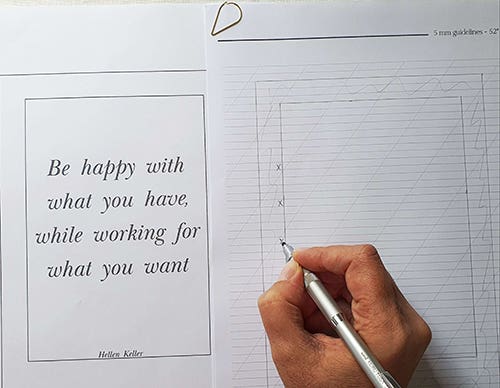 5 mm guidelines - 52°
Be happy with
what you have,
while working for
what you want
Hellen Keller
x
x